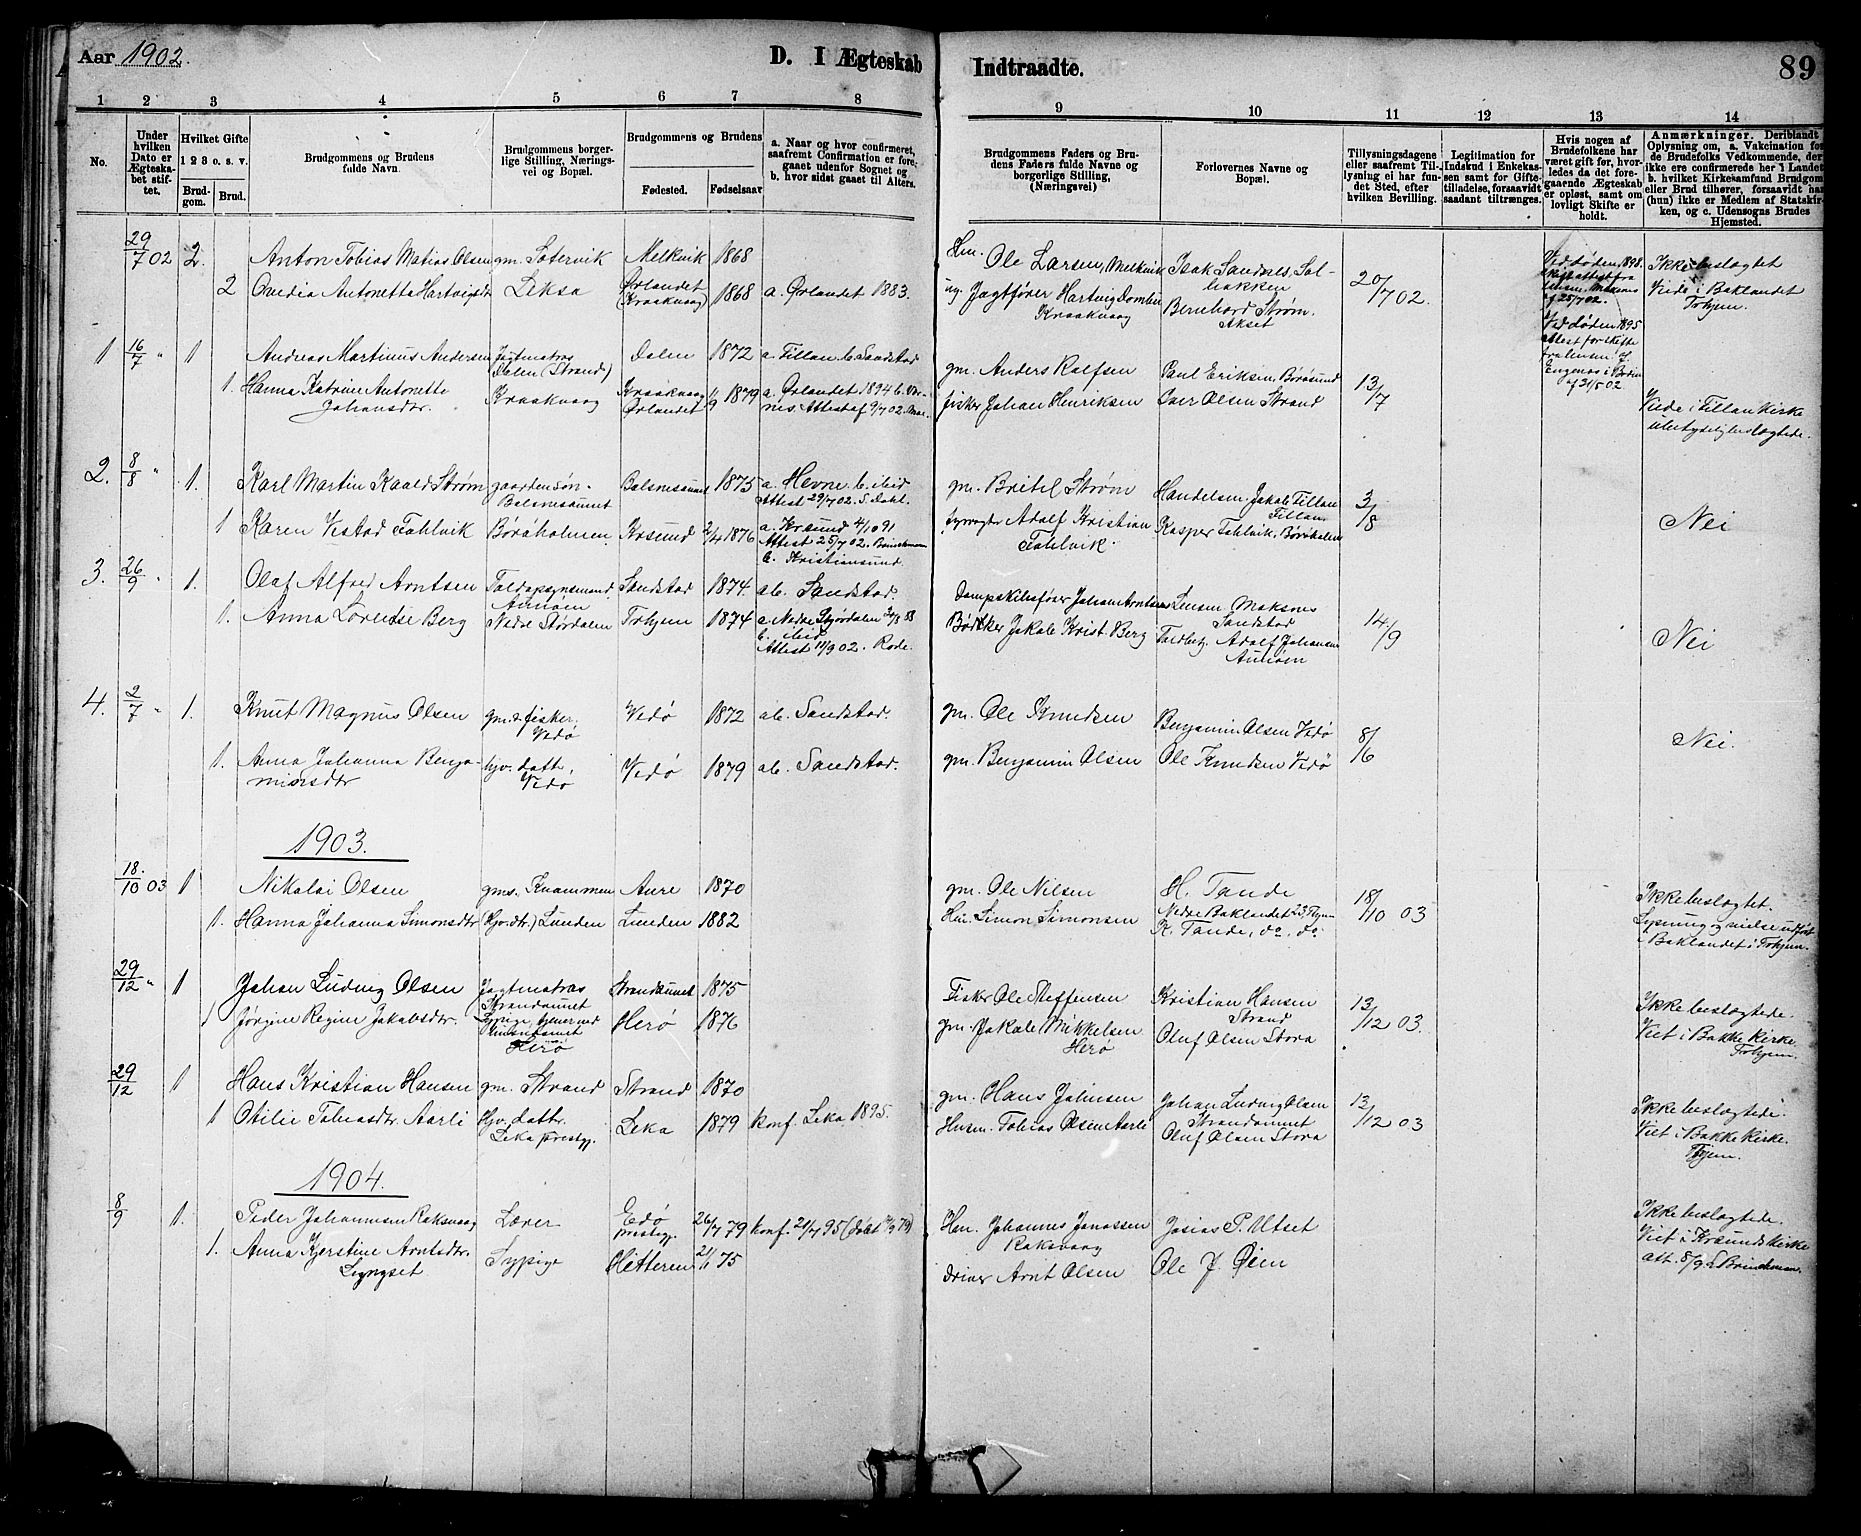 Aar 1902.
D. I Ægteskab Indtraadte.
89
1 2 3 4 5 6 7 8 9 10 11 12 13 14
No.
Under hvilken Dato er Ægteskabet stiftet.
Hvilket Gifte 1 2 3 o. s. v.
Brudgom.
Brud.
Brudgommens og Brudens fulde Navn.
Brudgommens borgerlige Stilling, Næringsvei og Bopæl.
Brudgommens og Brudens
Fødested.
Fødselsaar
a. Naar og hvor confirmeret, saafremt Confirmation er foregaaet udenfor Sognet og b. hvor sidst gaaet til Alters.
Brudgommens Faders og Brudens Faders fulde Navne og borgerlige Stilling, (Næringsvei)
Forlovernes Navne og Bopæl.
Tillysningsdagene eller saafremt Tillysning ei har fundet Sted, efter hvilken Bevilling.
Legitimation for Indskud i Enkekassen samt for Giftetilladelse, forsaavidt saadant tiltrænges.
Hvis nogen af Brudefolkene har været gift før, hvorledes da det foregaaende Ægteskab er opløst, samt om lovligt Skifte er holdt.
Anmærkninger. Deriblandt Oplysning om, a. Vakcination for de Brudefolks Vedkommende, der ikke ere confirmerede her i Landet b. hvilket Kirkesamfund Brudgom eller Brud tilhører, forsaavidt han (hun) ikke er Medlem af Statskirken, og c. Udensogns Brudes Hjemsted.
29/7 02 2. Anton Tobias Matias Olsen gm. Sætervik Melkvik 1868 Hm. Ole Larsen, Melkvik Isak Sandnes, Solbakken 20/7 02. Ved døden 1898. Ikke beslægtet
2 Ovedia Antonette Hartvigsdt Leksa Ørlandet (Kraakvaag) 1868 a. Ørlandet 1883. Jagtfører Hartvig Kraakvaag Bernhard Strøm. Akset Viede i Baklandet Trhjem.
Ved døden 1895
1 16/7 " 1 Andreas Martinus Andersen Jagtmatros Dalen (Strand) Dalen 1872 a. Fillan b. Sandstad gm. Anders Rolfsen Paul Eriksen, Børøsund 13/7
1. Hanna Katrine Antonette Johansdtr. Kraakvaag Kraakvaag Ørlandet 1/9 1879 a. Ørlandet 1894 Attest af 9/7 02. fisker Johan Henriksen Iver Olsen Strand Viede i Fillan Kirke
2. 8/8 " 1. Karl Martin Kaald Strøm gaardsøn Balsnesaunet 1875 a. Hevne b. ibid Attest 29/7 02. gm. Bertel Strøm Handelsm. Jakob Fillan Fillan 3/8
1 Karen Vestad Fahlvik Børøholmen Krsund 2/4 1876 a. Krsund 4/10 91 Attest 25/7 02. b. Kristiansund Adolf Kristian Fahlvik. Kasper Fahlvik, Børøholm Nei
3. 26/9 " 1. Olaf Alfred Arntsen Toldopsynsmand Aunøen Sandstad 1874. ab. Sandstad. Dampskibsfører Johan Arntsen Lensm. Maksnes Sandstad 14/9
1. Anna Lorentse Berg Nedre Størdalen Trhjem 1874 a Nedre Stjørdalen b. ibid Attest 11/9 02. Rode. Bødker Jakob Krist. Berg Toldbetj. Adolf Johansen Aunøen Nei
4. 2/7 " 1. Knut Magnus Olsen gm. & fisker, Vedø Vedø 1872 ab. Sandstad. gm. Ole Knudsen Benjamin Olsen Vedø 8/6
1. Anna Johanna Benjaminsdtr hjv. datt., Vedø Vedø 1879 ab. Sandstad. gm. Benjamin Olsen Ole Knudsen Vedø Nei.
1903.
18./10 03 1 Nikolai Olsen gms. Knammen Aure 1870 gm. Ole Nilsen H. Tande Nedre Baklandet 23, Thjem 18/10 03 Ikke beslægtet.
1. Hanna Johanna Simonsdtr (Hjv. dtr.) Lunden Lunden 1882 Hm. Simon Simonsen K. Tande, do, do. Lysning og vielse udført i Baklandet i Trhjem.
29/12 " 1 Johan Ludvig Olsen Jagtmatros Strandaunet Strandaunet 1875 Fisker Ole Steffensen Kristian Hansen Strand 13/12 03. Ikke beslægtede.
1 Jørgine Regine Jakobsdtr. Herø Herø 1876 gm. Jakob Mikkelsen Herø Oluf Olsen Stora Viet i Bakke Kirke, Trhjem.
29/12 1 Hans Kristian Hansen gm. Strand Strand 1870 gm. Hans Johnsen Johan Ludvig Olsen Strandaunet 13/12 03 Ikke beslægtede.
1 Otilie Tobiasdtr. Aarli Hjv. datter. Leka prestgj. Leka 1879 konf. Leka 1895. Husm. Tobias Olsen Aarli Oluf Olsen Stora Viet i Bakke Kirke. Thjem.
1904.
8/9 1. Peder Johannesen Raksvaag Lærer Edø prestgj. 26/7 79 konf. 21/7 95 (døbt 14/9 79) Hm. Johannes Jonassen Raksvaag Josias P. Utset Ikke beslægtede.
1. Anna Kjerstine Arntsdtr. Lyngset Sypige Hitteren 21/1 75 Arnt Olsen Ole J. Øien Viet i Krsunds Kirke att. 8/9 S Brinchman.